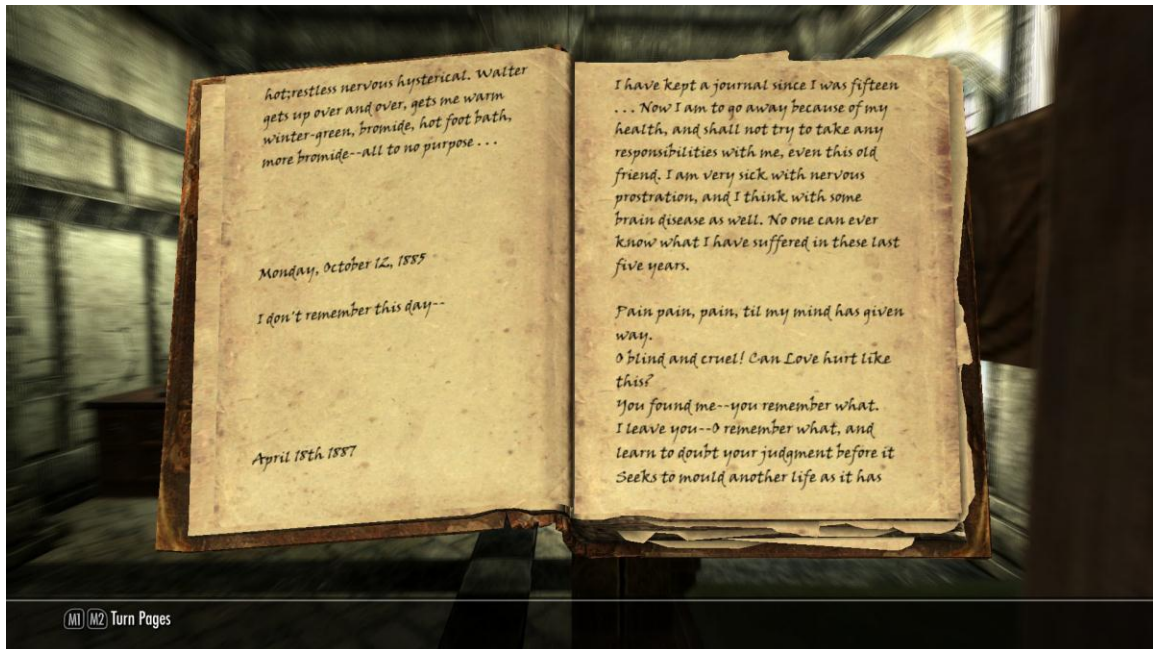 hot;restless nervous hysterical. Walter
gets up over and over, gets me warm
winter-green, bromide, hot foot bath,
more bromide--all to no purpose . . .
Monday, October 12, 1885
I don't remember this day--
April 18th 1887
I have kept a journal since I was fifteen
. . . Now I am to go away because of my
health, and shall not try to take any
responsibilities with me, even this old
friend. I am very sick with nervous
prostration, and I think with some
brain disease as well. No one can ever
know what I have suffered in these last
five years.
Pain pain, pain, til my mind has given
way.
O blind and cruel! Can Love hurt like
this?
You found me--you remember what.
I leave you--O remember what, and
learn to doubt your judgment before it
Seeks to mould another life as it has
M1 M2 Turn Pages